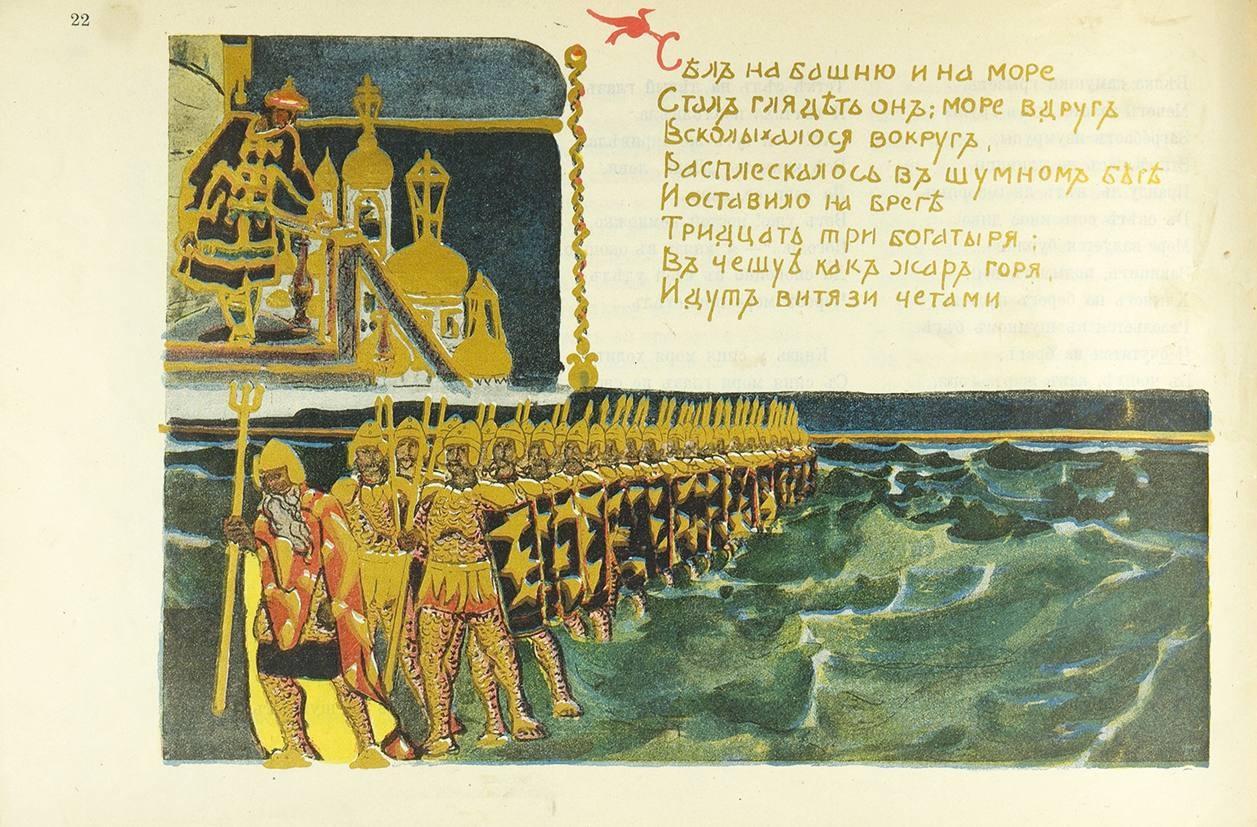 22
Сѣлъ на башню и на море
Сталъ глядѣть онъ; море вдругъ
Всколыхалося вокругъ,
Расплескалось въ шумномъ бѣгѣ
И оставило на брегѣ
Тридцать три богатыря;
Въ чешуѣ какъ жаръ горя,
Идутъ витязи четами